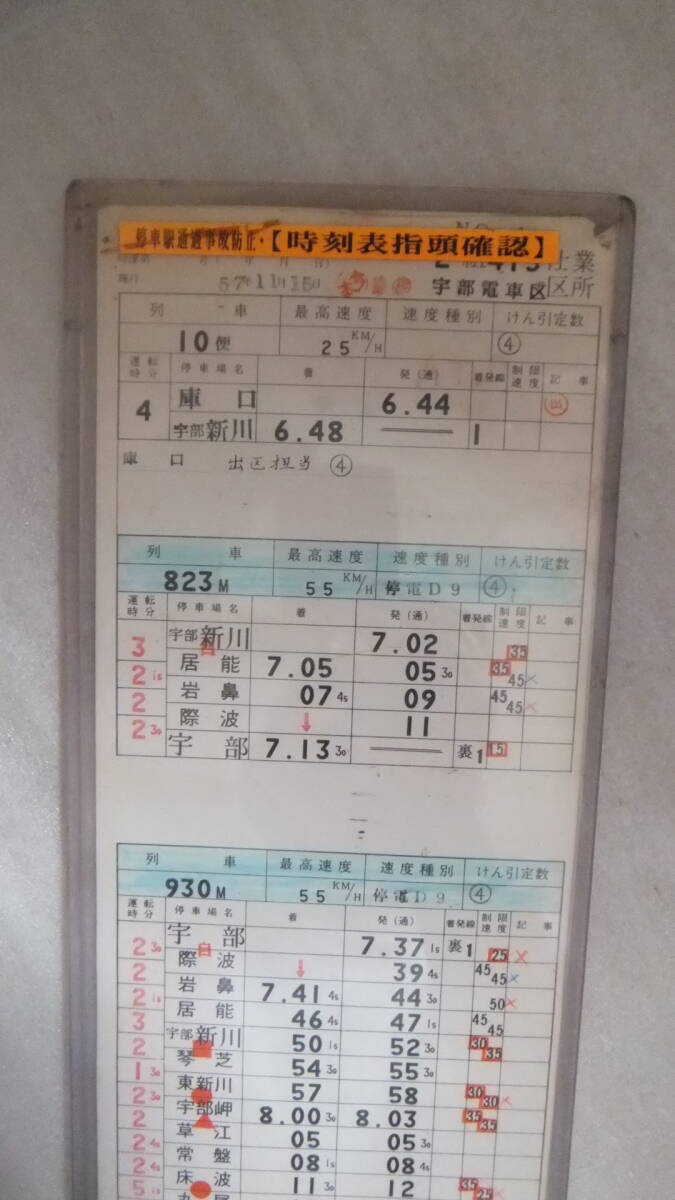 停車駅通過事故防止・【時刻表指頭確認】
仕業
施行 57年11月15日 宇部電車区 区所
列 車 最高速度 速度種別 けん引定数
10便 25KM/H ④
運転時分 停車場名 着 発(通) 着発線 制限速度 記事
4 庫口 6.44 出
宇部新川 6.48 1
庫 口 出区担当 ④
列 車 最高速度 速度種別 けん引定数
823M 55KM/H 停電D9 ④
運転時分 停車場名 着 発(通) 着発線 制限速度 記事
宇部新川 7.02
3 自 35
居能 7.05 05 30 35
2 15 45 ×
岩鼻 07 45 09 45
2 45 ×
際波 ↓ 11
2 30
宇部 7.13 30 裏1 15
列 車 最高速度 速度種別 けん引定数
930M 55KM/H 停電D9 ④
運転時分 停車場名 着 発(通) 着発線 制限速度 記事
宇部 7.37 15 裏1
2 30 自 25 ×
際波 ↓ 39 45 45
2 45 ×
岩鼻 7.41 45 44 30
2 15 50 ×
居能 46 45 47 15 45
3 45
宇部新川 50 15 52 30 30
2 35
琴芝 54 30 55 30
1 30
東新川 57 58 30
2 30 30 ×
宇部岬 8.00 30 8.03 35
2 35
草江 05 05 30
2 45
常盤 08 15 08 45
2 45
床波 11 30 12 35
5 15 25 ×